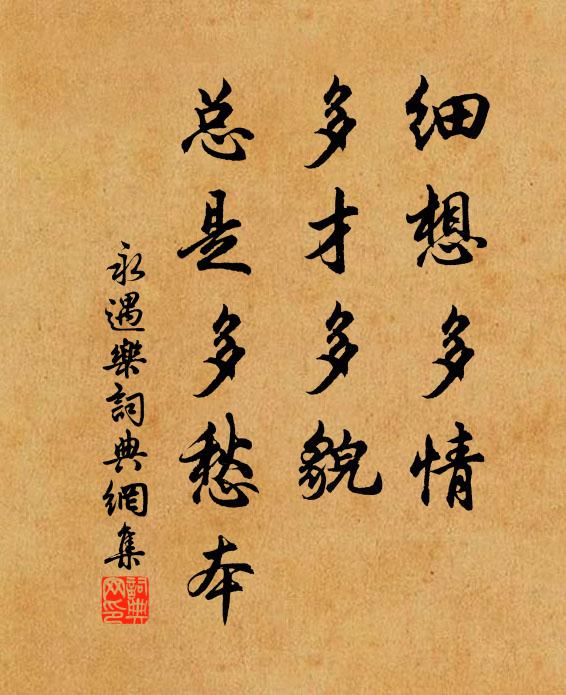 细想多情
多才多貌
总是多愁本
永遇樂詞典網集
詞典網印